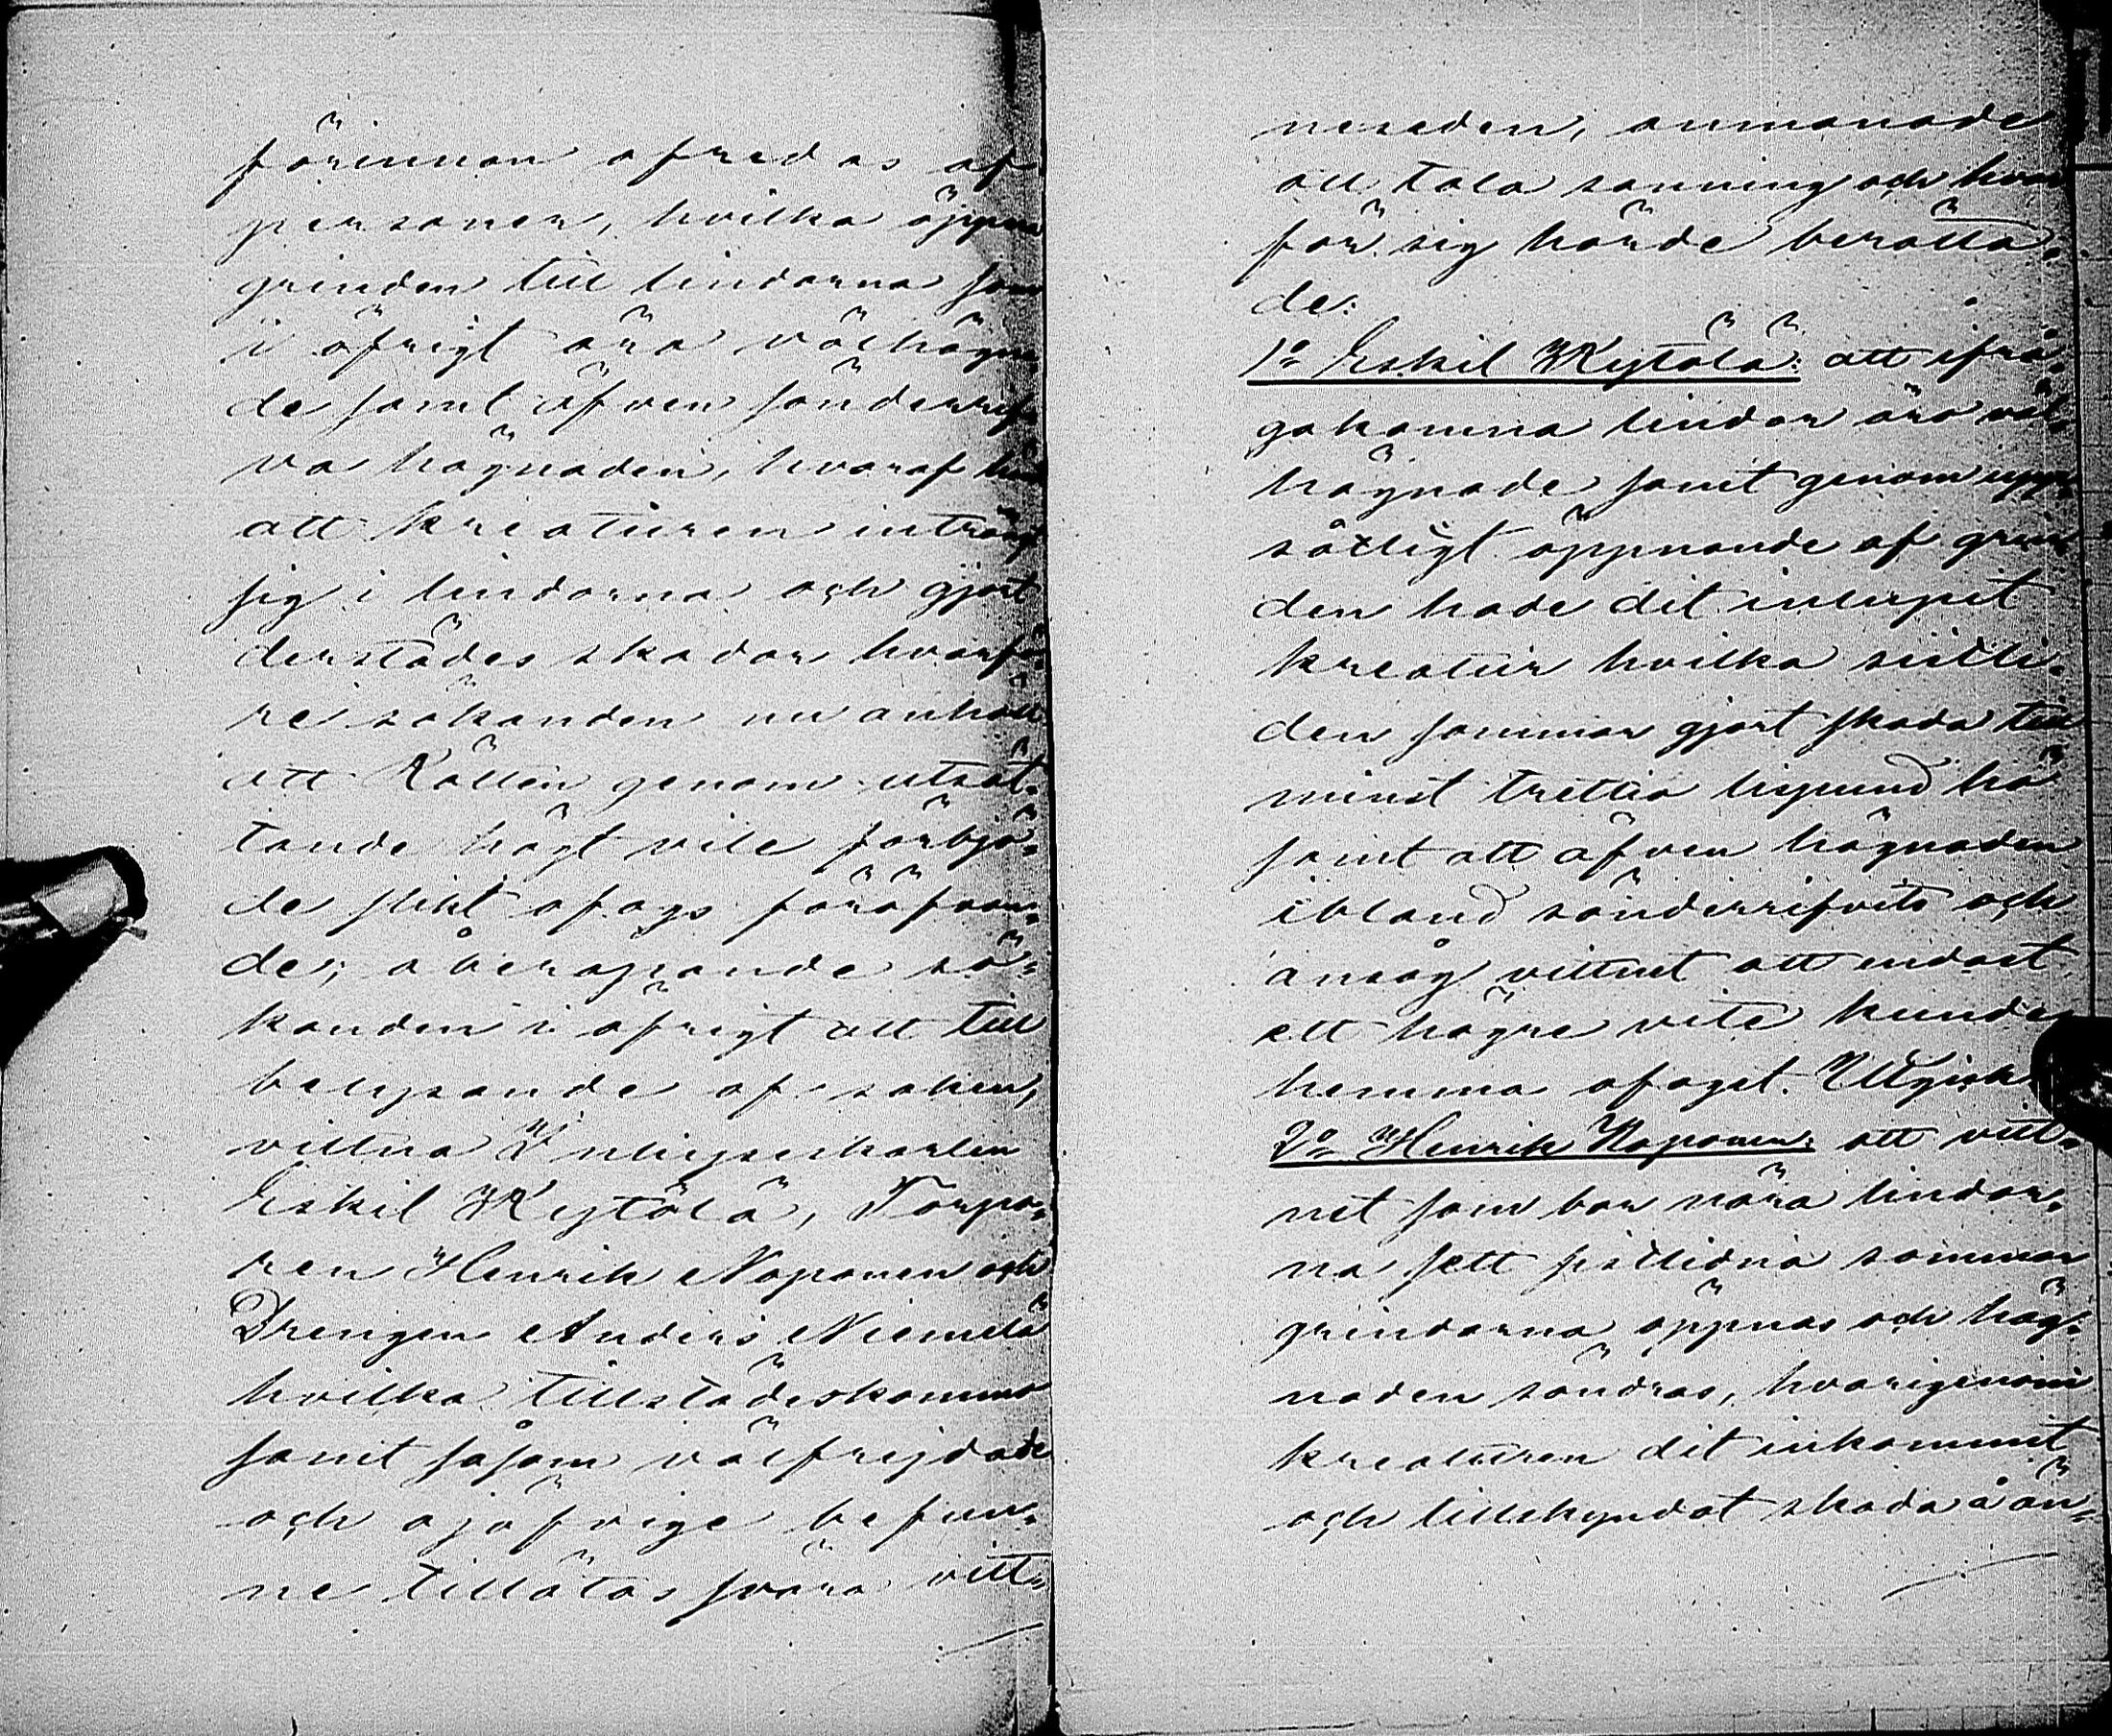 förinnan ofredas af
personer, hvilka öppna
grinden till lindorna som
i öfrigt äro välhägna-
de samt äfven sönderrif-
va hägnaden, hvaraf händt
att kreaturen inträngt
sig i lindorna och gjort
derstädes skador hvarfö-
re sökanden nu anhöll
att Rätten genom utsät-
tande högt vite förbju-
de slikt ofogs föröfvan-
de; åberopande sö-
kanden i öfrigt att till
belysande af saken,
vittna Inhysekarlen
Eskil Kytölä, Torpa-
ren Henrik Naponen och
Drengen Anders Niemelä
hvilka tillstädeskommo
samt såsom välfrejdade
och ojäfvige befun-
ne tillätos svära vitt-
neseden, anmanade
att tala sanning och hvar
för sig hörde berätta-
de:
1o Eskil Kytölä: att ifrå-
gakomna lindor äro väl-
hägnade samt genom upp-
såtligt öppnande af grin-
den hade dit inlupit
kreatur hvilka sistli-
den sommar gjort skada till
minst trettio lispund hö
samt att äfven hägnaden
ibland sönderrifvits och
ansåg vittnet att endast
ett högre vite kunde
hemma ofoget. Utgick
2o Henrik Naponen: att vitt-
net som bor nära lindor-
na sett sistlidna sommar
grindarna öppnas och häg-
naden söndras, hvarigenom
kreaturen dit inkommit
och tillskyndat skada å än-